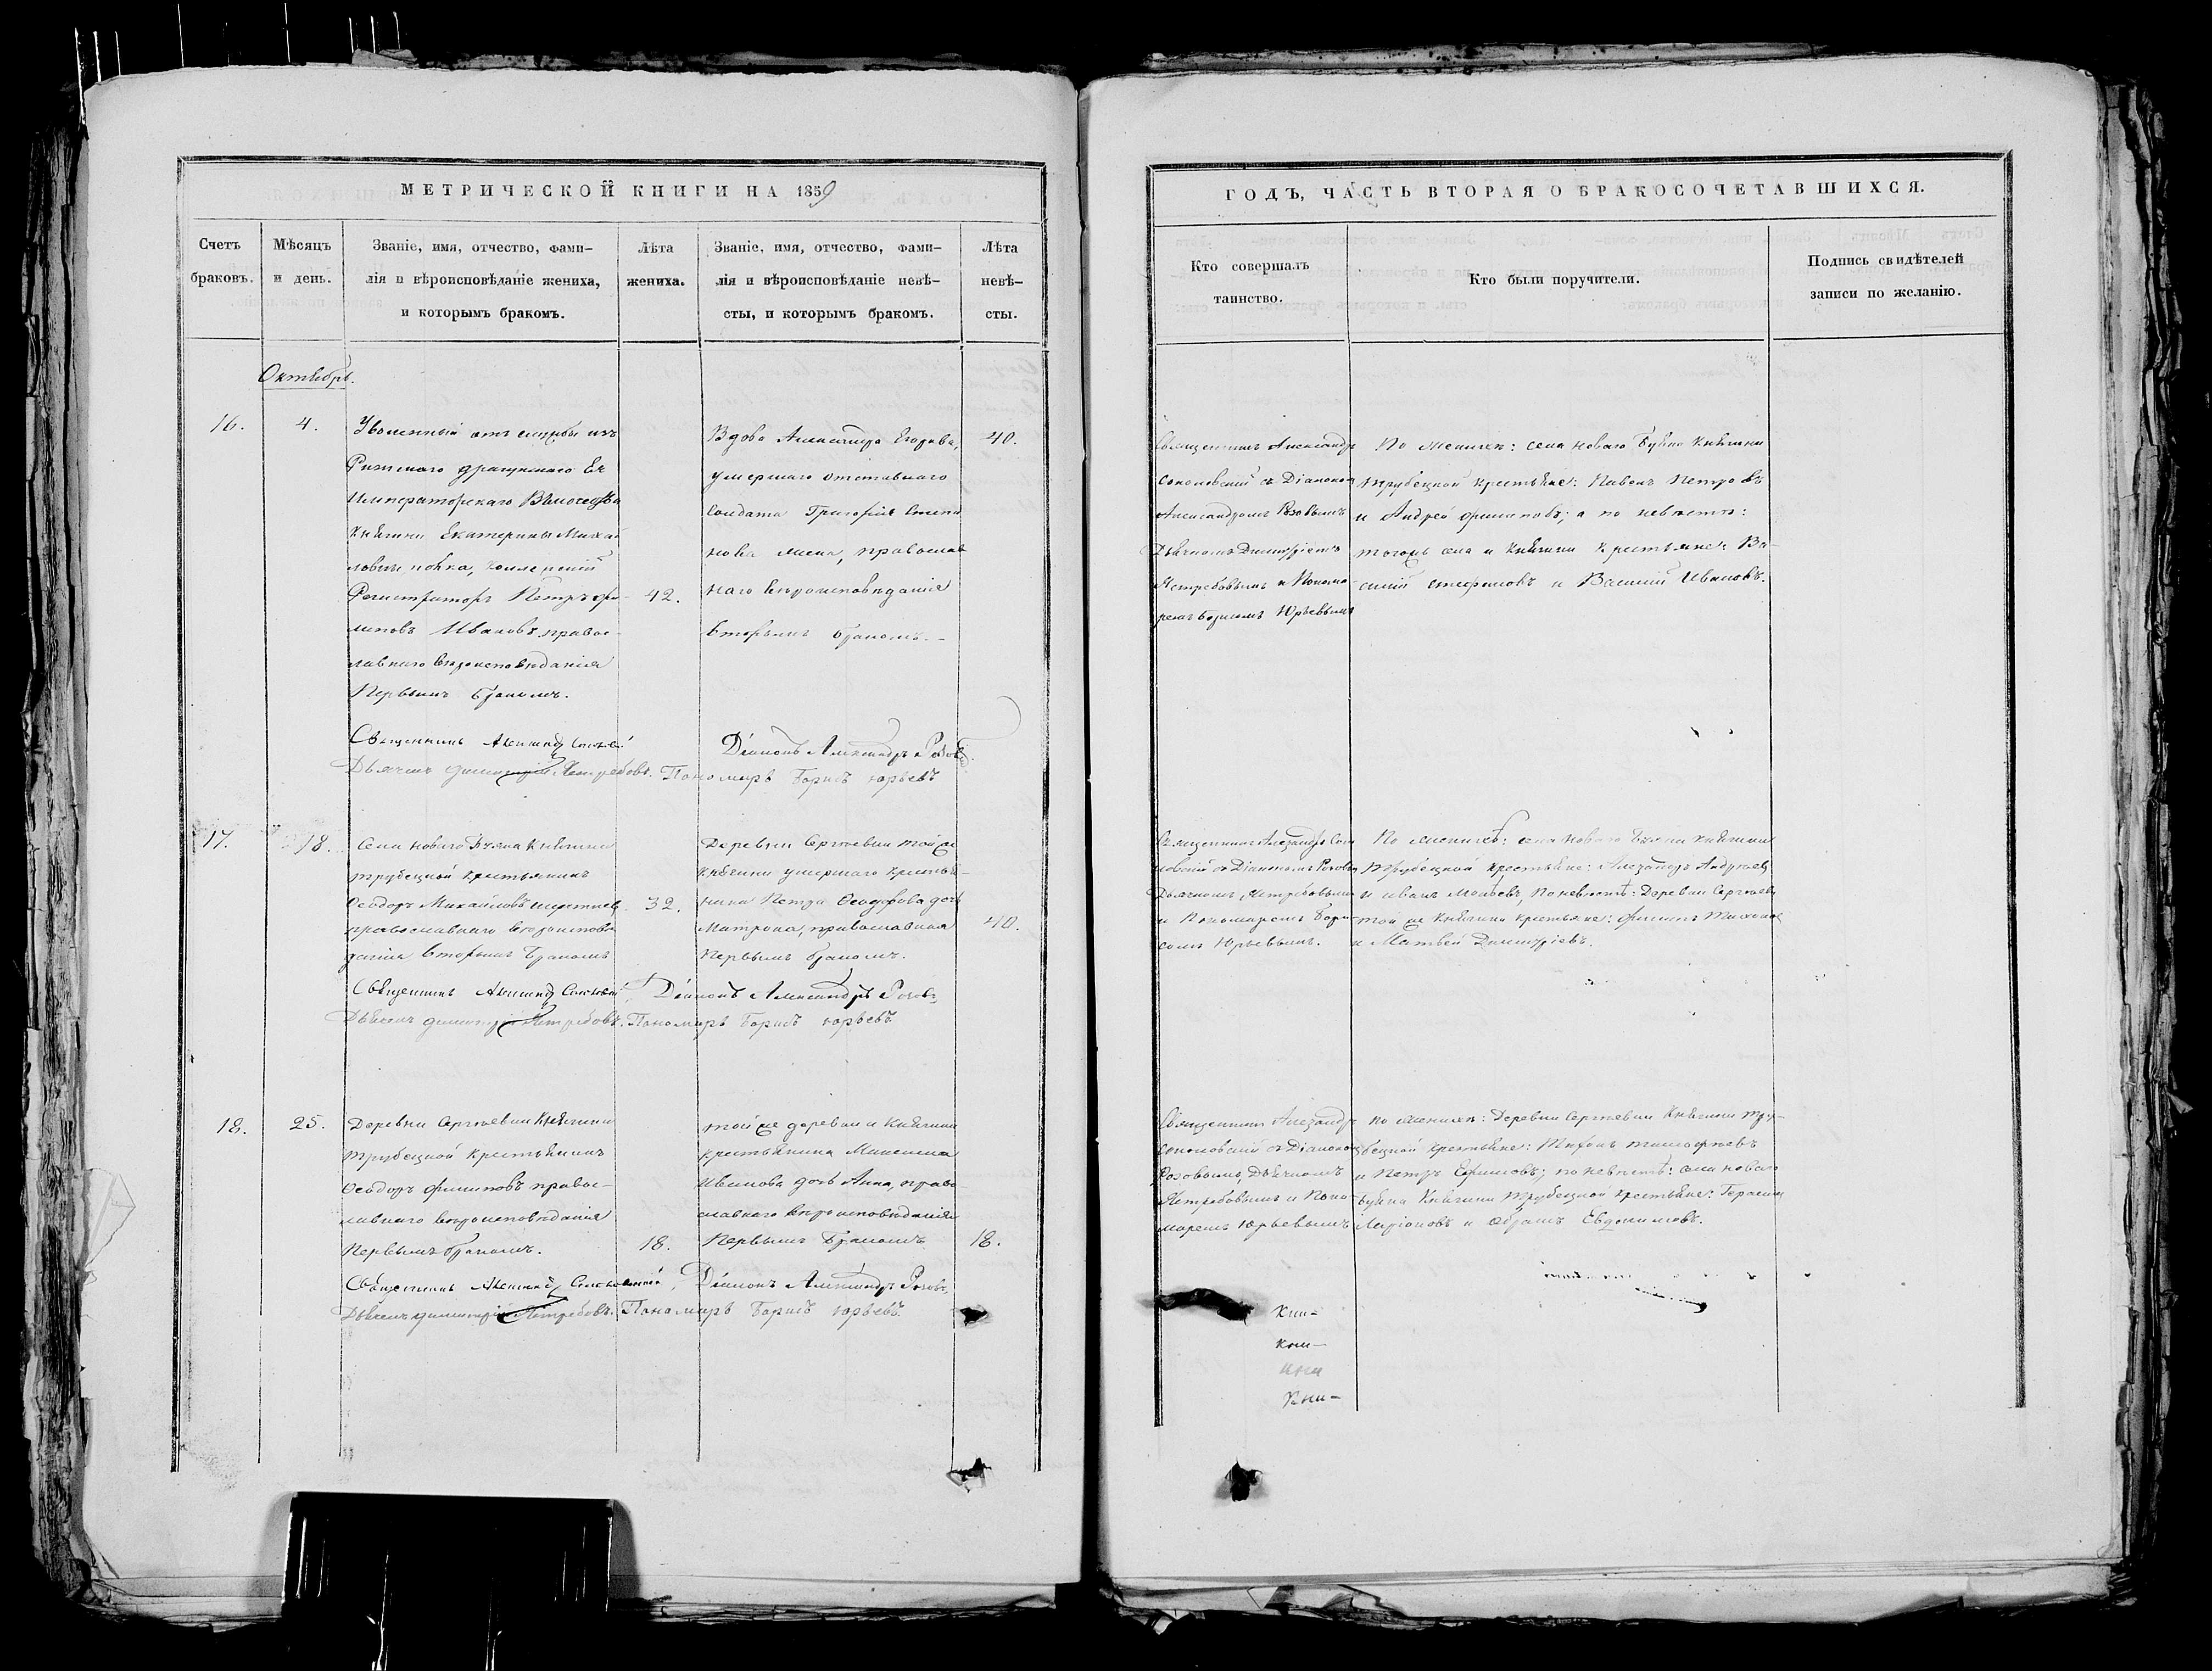 МЕТРИЧЕСКОЙ КНИГИ НА 1859
Счетъ браковъ.
Мѣсяцъ и день.
Званіе, имя, отчество, фами-
лія и вѣроисповѣданіе жениха,
и которымъ бракомъ.
Лѣта
жениха.
Званіе, имя, отчество, фами-
лія и вѣроисповѣданіе невѣ-
сты, и которымъ бракомъ.
Лѣта
невѣ-
сты.
Октябрь.
16.
4.
Уволенный отъ службы изъ
драгунскаго Ея
Императорскаго Высочества
Княгини Екатерины Михай
ловны полка,
Регистраторъ Петръ Фи-
липовъ Ивановъ, правос-
лавнаго вѣроисповѣданія
Первымъ бракомъ.
42.
Вдова Александра Егорова,
умершаго отставнаго
Солдата Григорія Степа
нова жена, православ
наго вѣроисповѣданія
вторымъ бракомъ.
40.
Священникъ
Діаконъ Александръ Розовъ
Дьячекъ Димитрій Ястребовъ. Пономарь Борисъ Юрьевъ
17.
18.
Села новаго Буяна Княгини
трубецкой крестьянинъ
Ѳеодоръ Михайловъ
православнаго вѣроисповѣ
данія, вторымъ бракомъ
32.
Деревни Сергѣевки той же
Княгини умершаго крестья-
нина Петра Ѳеодорова дочь
Матрона, православная
Первымъ бракомъ.
40.
Священникъ
Діаконъ Александръ Розовъ
Дьячекъ Димитрій Ястребовъ. Пономарь Борисъ Юрьевъ
18.
25.
Деревни Сергѣевки Княгини
Трубецкой крестьянинъ
Ѳеодоръ Филиповъ правос-
лавнаго вѣроисповѣданія
Первымъ бракомъ.
18.
той же деревни и Княгини
крестьянина Максима
Иванова дочь Анна, право
славнаго вѣроисповѣданія
Первымъ бракомъ
18.
Священникъ
Діаконъ Александръ Розовъ
Дьячекъ Димитрій Ястребовъ. Пономарь Борисъ Юрьевъ.
ГОДЪ, ЧАСТЬ ВТОРАЯ О БРАКОСОЧЕТАВШИХСЯ.
Кто совершалъ
таинство.
Кто были поручители.
Подпись свидѣтелей
записи по желанію.
Священникъ Александръ
Соколовскій съ Діакономъ
Александромъ Розовымъ
Дьячкомъ Димитріемъ
Ястребовымъ и Понома
ремъ Борисомъ Юрьевымъ
По женихѣ: села новаго Буяна Княгини
трубецкой крестьяне: Павелъ Петровъ
и Андрей Филиповъ; а по невѣстѣ:
тогожъ села и Княгини крестьяне: Ва-
силій и Василій Ивановъ.
Священникъ Александръ Соко
ловскій съ Діакономъ Розовымъ
Дьячкомъ Ястребовымъ
и Пономаремъ Бори-
сомъ Юрьевымъ.
По женихѣ: села новаго Буяна Княгини
Трубецкой крестьяне: Александръ Андреевъ
и Иванъ По невѣстѣ: Деревни Сергѣевки
той же Княгини крестьяне: Филипъ Тихоновъ
и Матвей Димитріевъ.
Священникъ Александръ
Соколовскій съ Діакономъ
Розовымъ, Дьячкомъ
Ястребовымъ и Поно-
маремъ Юрьевымъ
По женихѣ: Деревни Сергѣевки Княгини Тру-
бецкой крестьяне: Тимофѣевъ
и Петръ Ефимовъ; по невѣстѣ: села новаго
Буяна Княгини Трубецкой крестьяне: Герасимъ
Ларіоновъ и Абрамъ Евдокимовъ.
Кни-
Кни-
Кни-